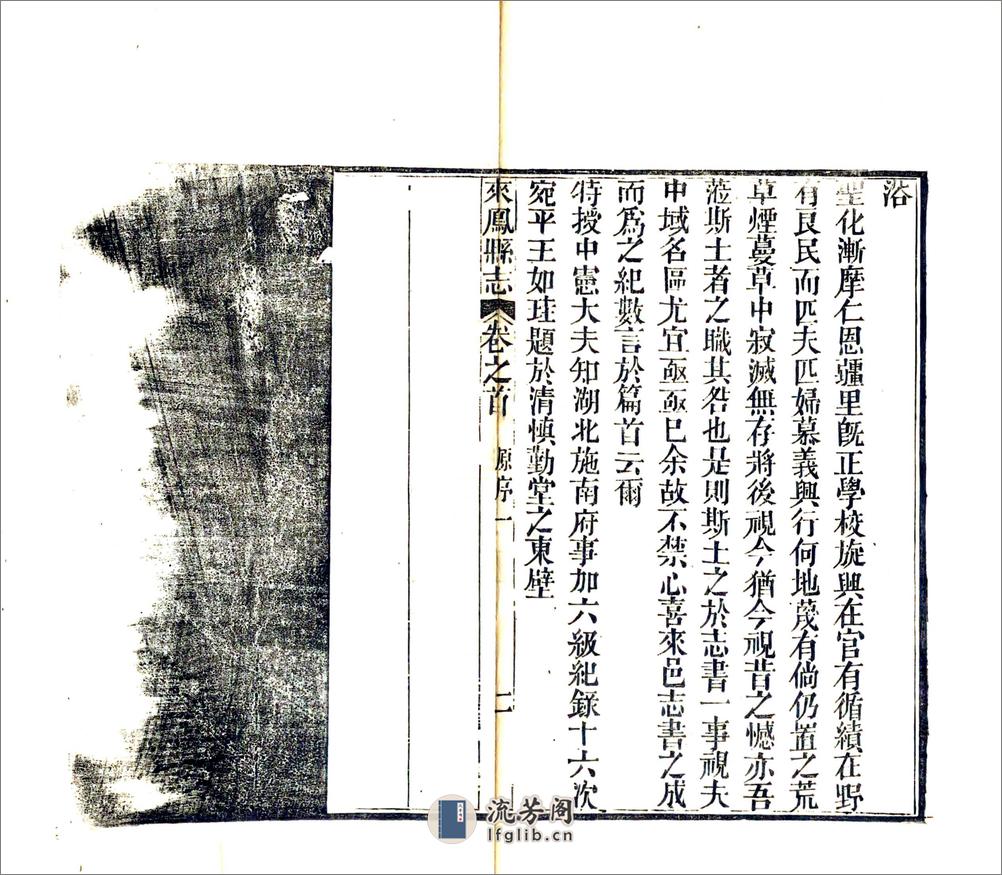 浴
聖化漸摩仁恩疆里既正學校旋興在官有循績在野
有良民而匹夫匹婦慕義興行何地蔑有倘仍置之荒
草煙蔓草中寂滅無存將後視今猶今視昔之憾亦吾
蒞斯土者之職其咎也是則斯土之於志書一事視夫
中域名區尤宜亟亟已余故不禁心喜來邑志書之成
而爲之紀數言於篇首云爾
特授中憲大夫知湖北施南府事加六級紀錄十六次
宛平王如珪題於清慎勤堂之東壁
來鳳縣志 卷之首 原序一 二
流芳阁
lfglib.cn